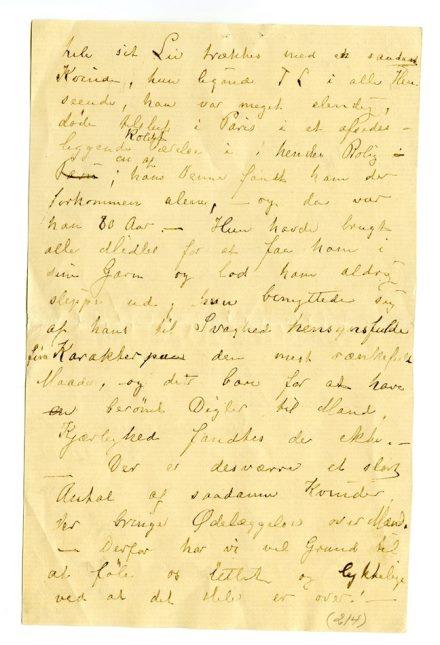 hele sit Liv trækkes med en saadan
Kvinde, hun lignede T L i alle Hen
seende, han var meget elendig,
døde i Paris i et afsides-
liggende Kvarter i hendes Bolig i
en af hans Venner fandt ham der
forkommen alene, – og da var
han 80 Aar. – Hun havde brugt
alle Midler for at faa ham i
sine Garn og lod ham aldrig
slippe ud, hun benyttede sig
af hans til Svaghed hensynsfulde
fine Karakter paa den mest rænkefulde
Maade, og det bare for at have
en berømt Digter til Mand,
Kjærlighed fandtes der ikke. –
– Der er desværre et stort
Antal af saadanne Kvinder,
der bringe Ødelæggelse over Mænd.
– Derfor har vi vel Grund til
at føle os lettet og lykkelige
ved at det Hele er over! –
(2/4)